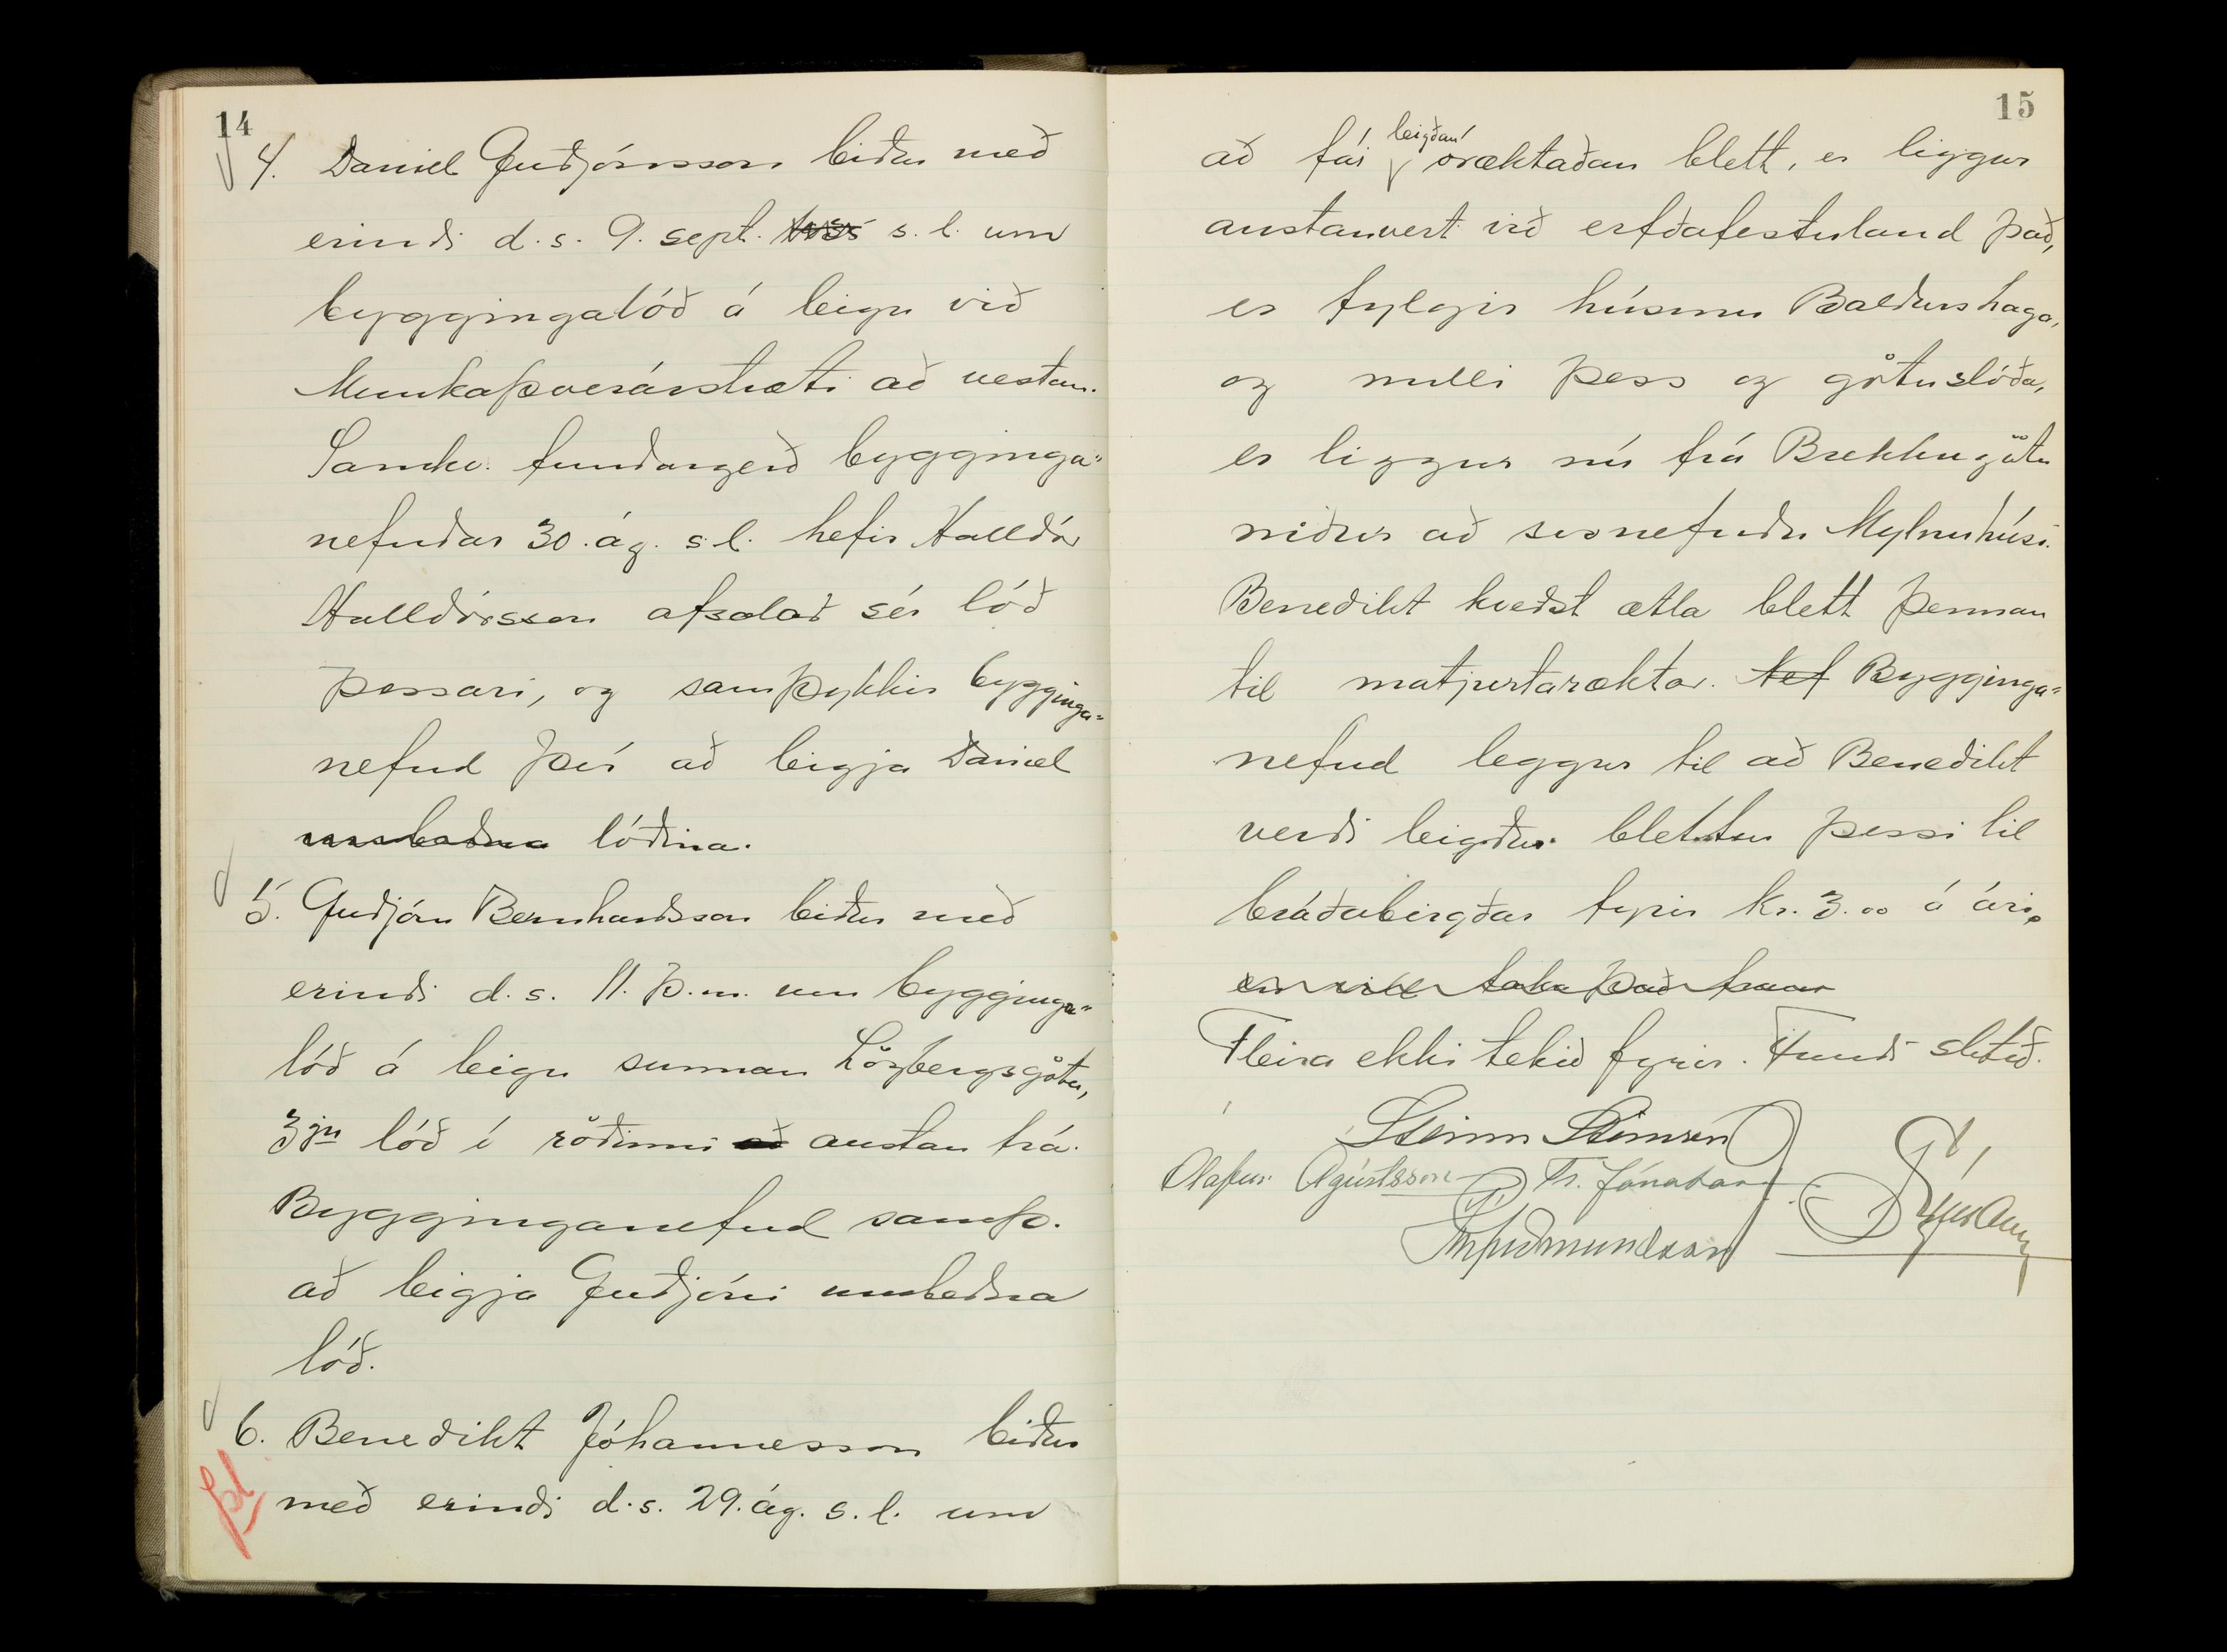 14
4. Daníel Guðjónsson biður með
erindi d.s. 9. sept. s.l. um
byggingalóð á leigu við
Munkaþverárstræti að vestan.
Samkv. fundargerð bygginga-
nefndar 30. ág. s.l. hefir Halldór
Halldórsson afsalað sér lóð
þessari, og samþykkir bygginga-
nefnd því að leigja Daníel
umbeðna lóðina.
5. Guðjón Bernharðsson biður með
erindi d.s. 11. þ.m. um bygginga-
lóð á leigu sunnan Lögbergsgötu,
3ju lóð í röðinni að austan frá.
Bygginganefnd samþ.
að leigja Guðjóni umbeðna
lóð.
6. Benedikt Jóhannesson biður
með erindi d.s. 29. ág. s.l. um
15
að fá leigðan óræktaðan blett, er liggur
austanvert við erfðafestuland það,
er fylgir húsinu Baldurshaga,
og milli þess og götuslóða,
er liggur nú frá Brekkugötu
niður að svonefndu Mylnuhúsi.
Benedikt kveðst ætla blett þennan
til matjurtaræktar. Nef Bygginga-
nefnd leggur til að Benedikt
verði leigður blettur þessi til
bráðabirgðar fyrir kr. 3.00 á ári,
en vill taka það fram
Fleira ekki tekið fyrir. Fundi slitið.
Steinn Steinsen
Ólafur Ágústsson Tr. Jónatansson